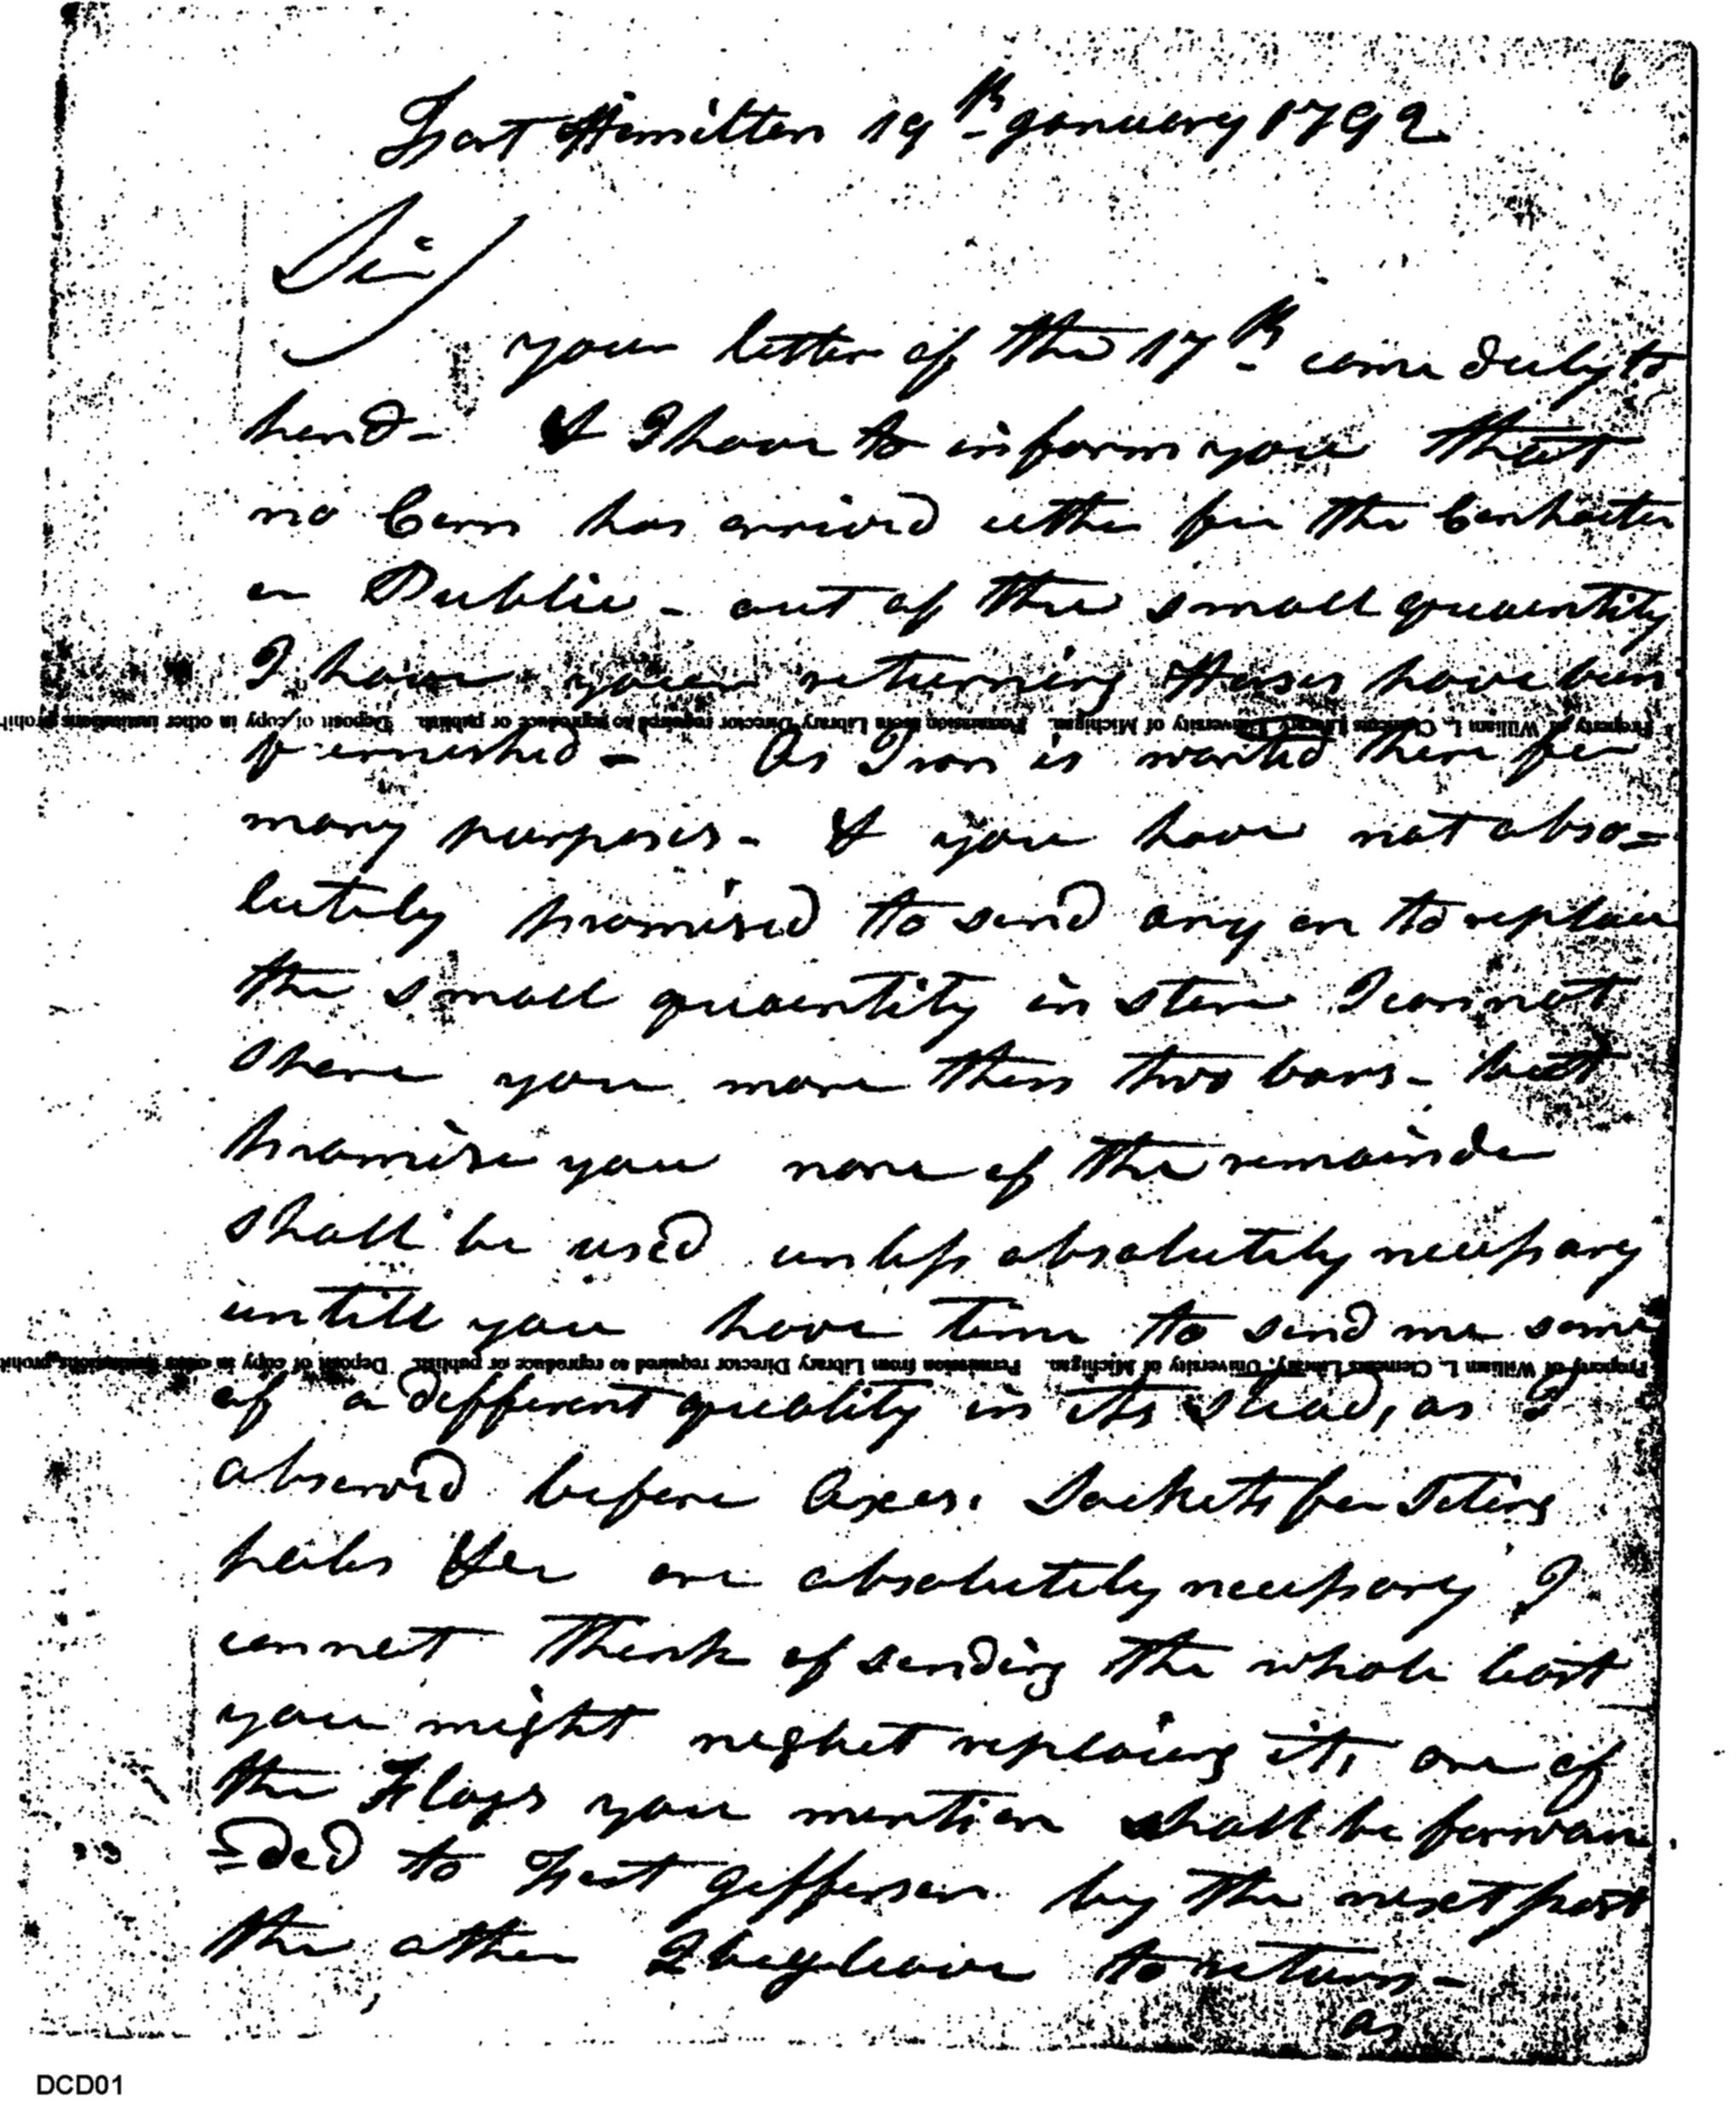 6
Fort Hamilton 19th January 1792
Sir/
your letter of the 17th came duly to
hand - & I have to inform you that
no Corn has arrived either for the Contractor
or Public - out of the small quantity
I have your returning Horses have been
Property of William L. Clements Library, University of Michigan. Permission from Library Director required to reproduce or publish. Deposit of copy in other institutions prohi
furnished - As Iron is wanted here for
many purposes - & you have not abso=
lutely promised to send any on to replace
the small quantity in store I cannot
spare you more then two bars - but
promise you none of the remainder
shall be used unless absolutely necessary
untill you have time to send me some
Property of William L. Clements Library, University of Michigan. Permission from Library Director required to reproduce or publish. Deposit of copy in other institutions prohi
of a different quality in its stead, as I
observed before Axes. Sockets for
&ca are absolutely necessary I
cannot think of sending the whole least
you might neglect replacing it, one of
the Flags you mention shall be forwar
=ded to Fort Jefferson by the next post
the other I beg leave to return -
as
DCD01